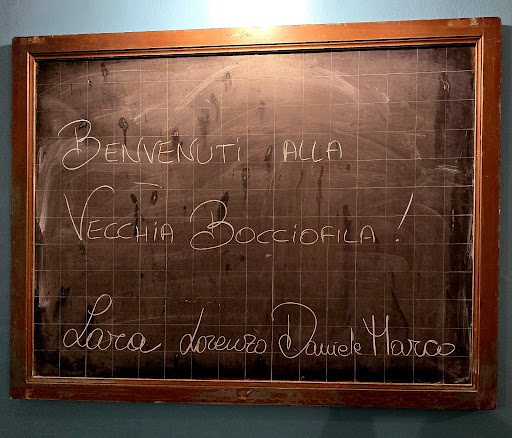 BENVENUTI ALLA
VECCHIA BOCCIOFILA!
Lara Lorenzo Daniele Marco